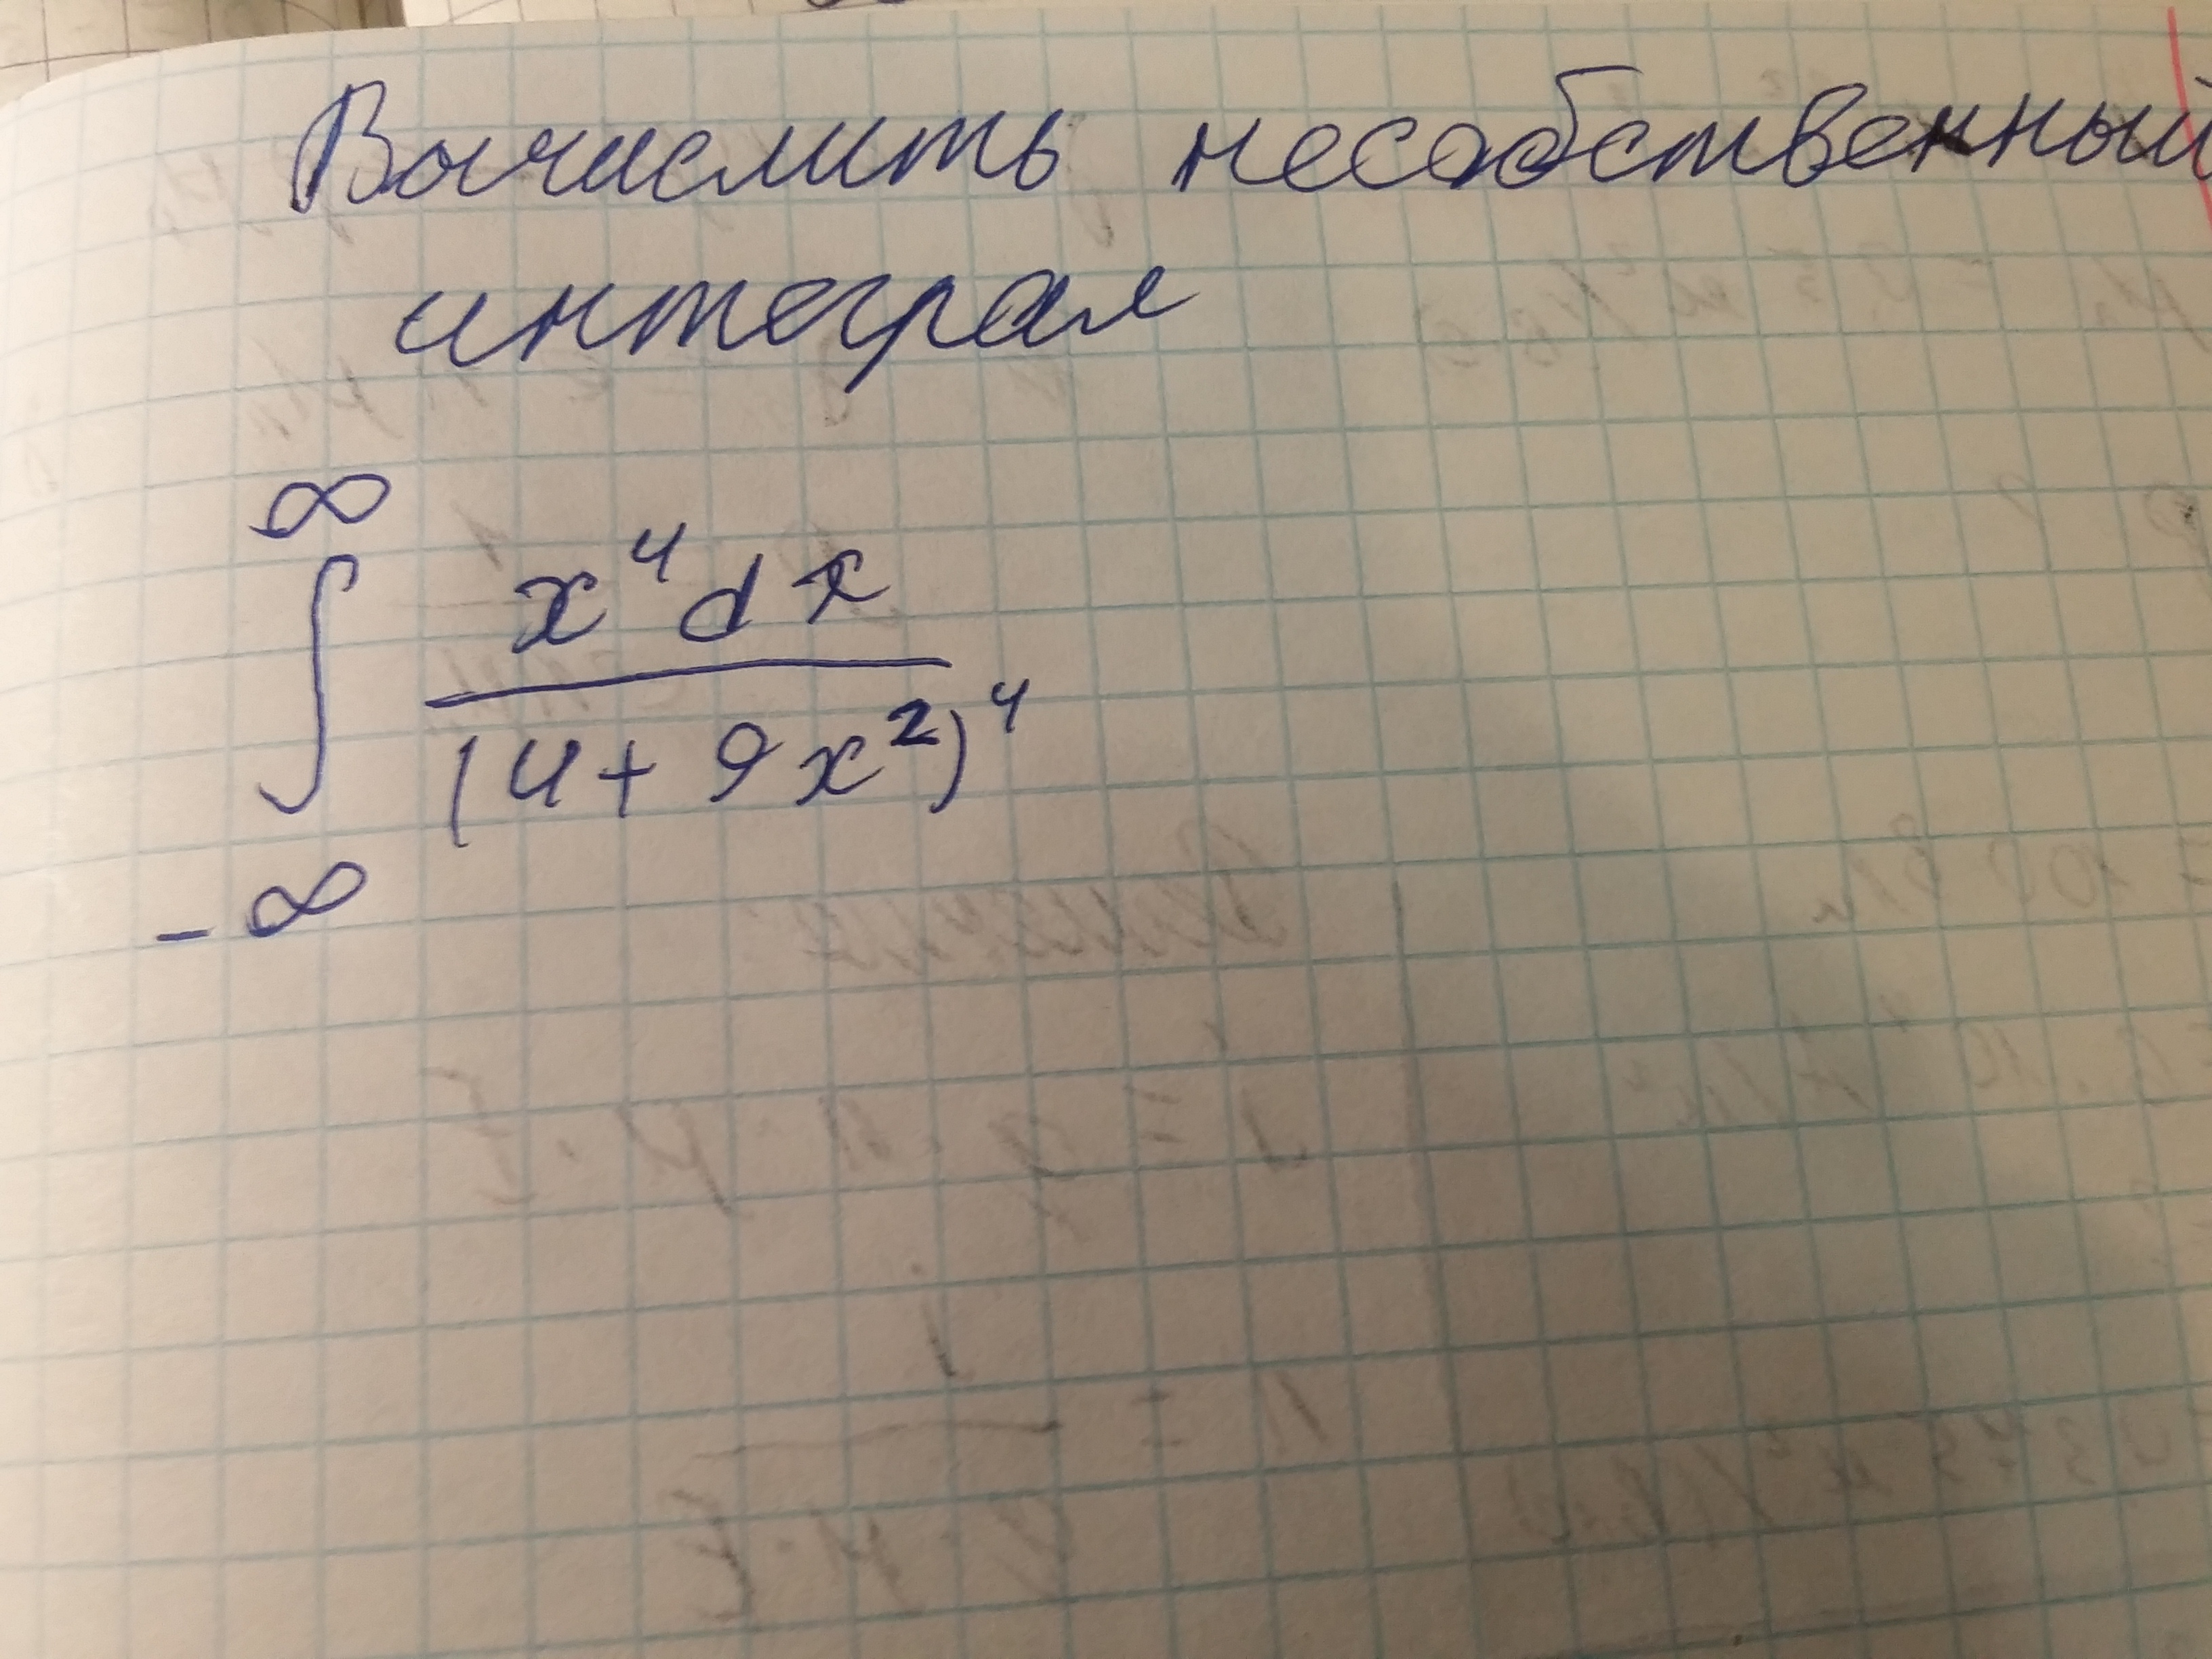 Вычислить несобственный
интеграл
∞
∫ x⁴dx / (4+9x²)⁴
-∞